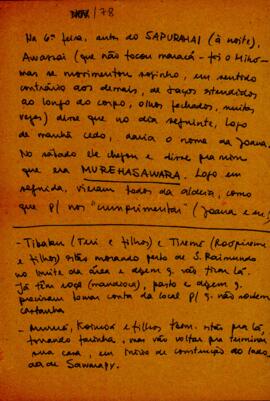 NOV./78
Na 6ª feira, antes do SAPURAHAI (à noite),
Awasai (que não tocou maracá - foi o Miho-
mas se movimentou sozinho, em sentido
contrário aos demais, de braços estendidos
ao longo do corpo, olhos fechados, muitas
vezes) disse que no dia seguinte, logo
de manhã cedo, daria o nome da Joana.
No sábado ele chegou e disse pra mim
que era MUREHASAWARA. Logo em
seguida, vieram todos da aldeia, como
que p/ nos "cumprimentar" (Joana e eu).
- Tibaku (Teri e filhos) e Tremé
e filhos) estão morando perto de S. Raimundo
no limite da área e dizem q. vão tirar lá.
Já têm roça (mandioca), pasto e dizem q.
precisam tomar conta do local p/ q. não roubem
castanha
- Murué, e filhos tbém. estão pra lá,
torrando farinha, mas vão voltar pra terminar
sua casa, em início de construção ao lado
da de Sawarapy.